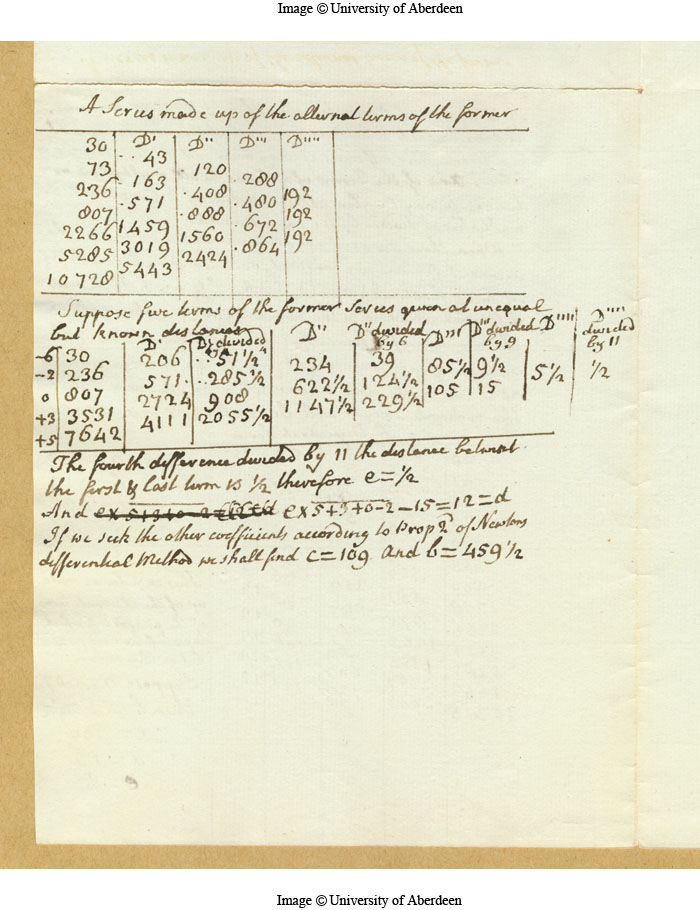 Image © University of Aberdeen
A Series made up of the alternal terms of the former
30 D' D'' D''' D''''
73 43 120
236 163 408 288 192
807 571 888 480 192
2266 1459 1560 672 192
5285 3019 2424 864
10728 5443
Suppose five terms of the former Series given at unequal
but known distances
D' D' divided D'' D'' divided by 6 D''' D''' divided by 9 D'''' D'''' divided by 11
-6 30 206 51½ 234 39 85½ 9½ 5½ ½
-2 236 571 285½ 622½ 124½ 105 15
0 807 2724 908 1147½ 229½
+3 3531 4111 2055½
+5 7642
The fourth difference divided by 11 the distance betwixt
the first & last term is ½ therefore e=½
And e×5+3+0-2-15=12=d
If we seek the other coefficients according to Prop 2d of Newtons
differential Method we shall find c=109 And b=459½
Image © University of Aberdeen